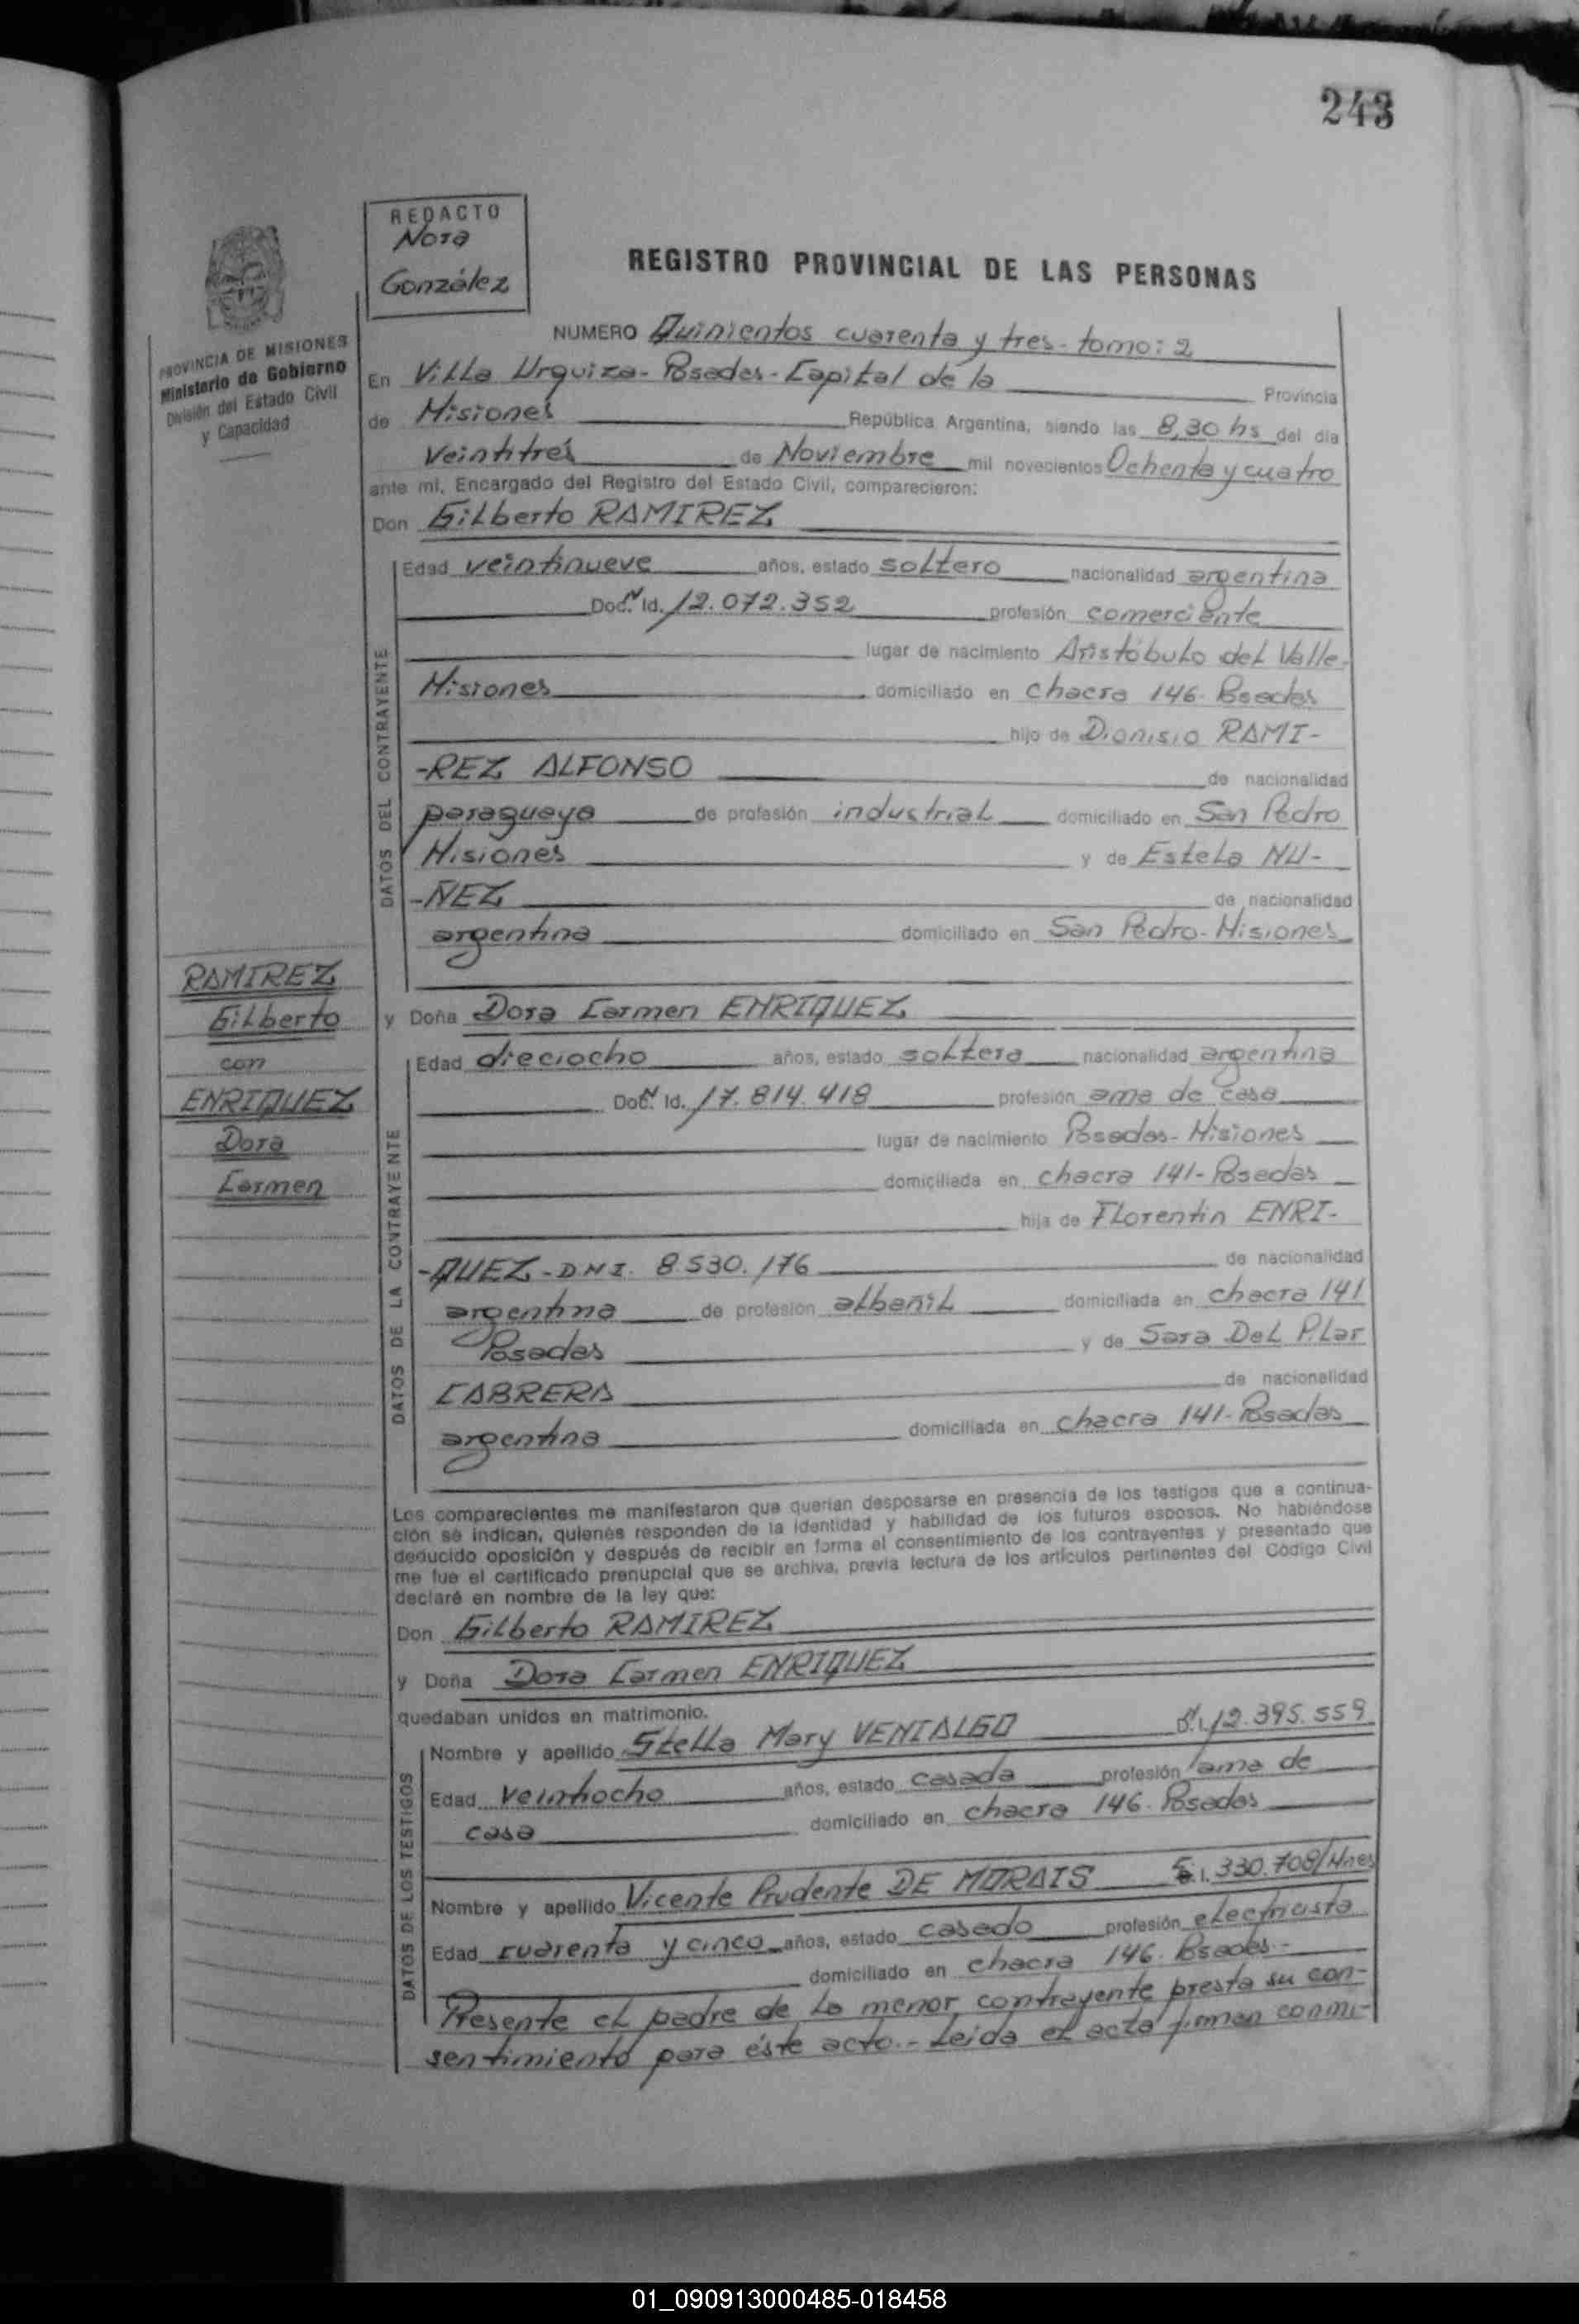 243
REDACTO
Nora
González
REGISTRO PROVINCIAL DE LAS PERSONAS
PROVINCIA DE MISIONES
Ministerio de Gobierno
División del Estado Civil
y Capacidad
NUMERO Quinientos cuarenta y tres - tomo: 2
En Villa Urquiza - Posadas - Capital de la Provincia
de Misiones República Argentina, siendo las 8,30 hs del día
Veintitrés de Noviembre mil novecientos Ochenta y cuatro
ante mí, Encargado del Registro del Estado Civil, comparecieron:
Don Gilberto RAMIREZ
DATOS DEL CONTRAYENTE
Edad veintinueve años, estado soltero nacionalidad argentina
Doc. Id. 12.072.352 profesión comerciante
lugar de nacimiento Aristóbulo del Valle-
Misiones domiciliado en chacra 146- Posadas
hijo de Dionisio RAMI-
-REZ ALFONSO de nacionalidad
paraguaya de profesión industrial domiciliado en San Pedro
Misiones y de Estela NU-
-ÑEZ de nacionalidad
argentina domiciliado en San Pedro - Misiones
RAMIREZ
Gilberto
con
ENRIQUEZ
Dora
Carmen
y Doña Dora Carmen ENRIQUEZ
DATOS DE LA CONTRAYENTE
Edad dieciocho años, estado soltera nacionalidad argentina
Doc. Id. 17.814.418 profesión ama de casa
lugar de nacimiento Posadas - Misiones
domiciliada en chacra 141 - Posadas
hija de Florentin ENRI-
-QUEZ - DNI. 8.530.176 de nacionalidad
argentina de profesión albañil domiciliada en chacra 141
Posadas y de Sara Del Pilar
CABRERA de nacionalidad
argentina domiciliada en chacra 141 - Posadas
Los comparecientes me manifestaron que querían desposarse en presencia de los testigos que a continua-
ción se indican, quienes responden de la identidad y habilidad de los futuros esposos. No habiéndose
deducido oposición y después de recibir en forma el consentimiento de los contrayentes y presentado que
me fue el certificado prenupcial que se archiva, previa lectura de los artículos pertinentes del Código Civil
declaré en nombre de la ley que:
Don Gilberto RAMIREZ
y Doña Dora Carmen ENRIQUEZ
quedaban unidos en matrimonio.
DATOS DE LOS TESTIGOS
Nombre y apellido Stella Mary VENIALGO 12.395.559
Edad veintiocho años, estado casada profesión ama de
casa domiciliado en chacra 146 - Posadas
Nombre y apellido Vicente Prudente DE MORAIS C.I. 330.708/Mnes
Edad cuarenta y cinco años, estado casado profesión electricista
domiciliado en chacra 146. Posadas.-
Presente el padre de la menor contrayente presta su con-
sentimiento para éste acto.- Leída el acta firman conmi-
01_090913000485-018458